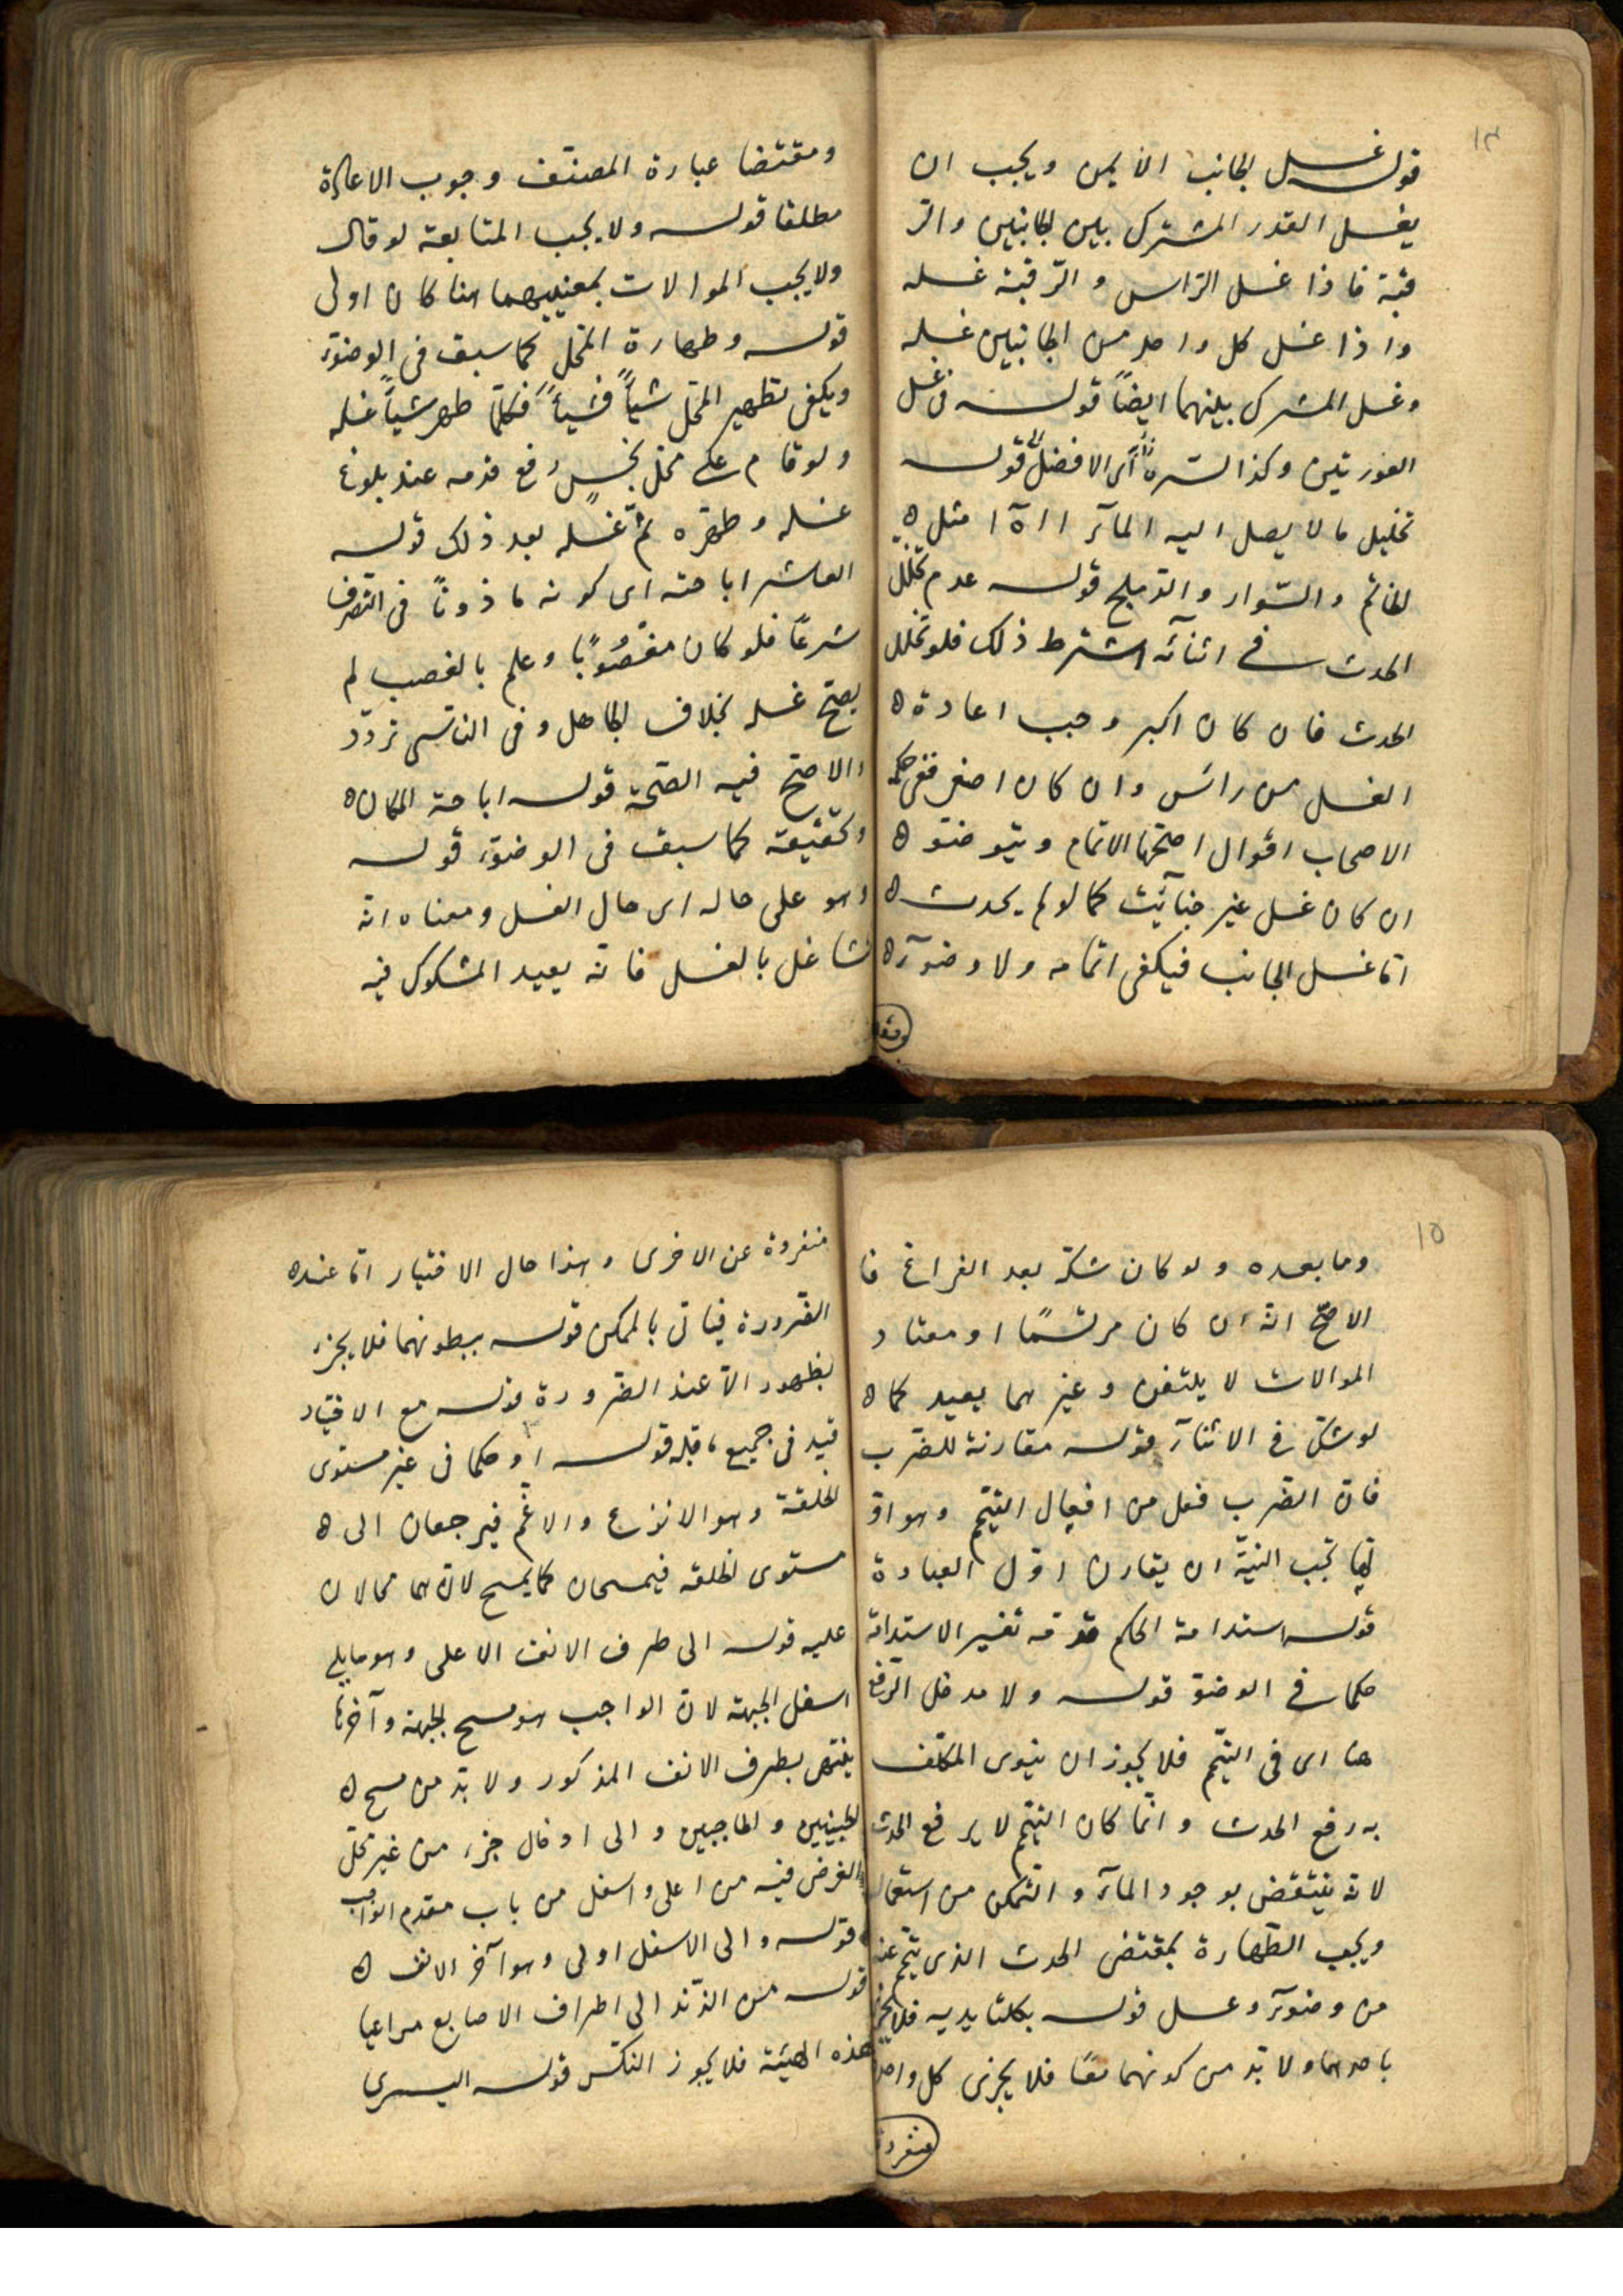 ١٤
قوله غسل الجانب الأيمن ويجب ان
يغسل القدر المشترك بين الجانبين والر
قبة فاذا غسل الراس والرّقبة غسله
واذا غسل كل واحد من الجانبين غسله
وغسل المشترك بينهما ايضاً قوله في غسل
العورتين وكذا السّرة اى الافضل قوله
تخليل ما لا يصل اليه المآء الا ه ا مثل ه
الخاتم والسّوار والدّملج قوله عدم تخلّل
الحدث في اثنائه اشترط ذلك فلو تخلل
الحدث فان كان اكبر وجب اعادة ه
الغسل من رائس وان كان اصغر ففى حكمه
الاصحاب اقوال اصحّها الاتمام ويتوضوّ ه
ان كان غسل غير جنابة كما لو لم يحدث ه
امّا غسل الجانب فيكفى اتمامه ولا وضوء ه
ومقتضا
ومقتضا عبارة المصنّف وجوب الاعادة
مطلقا قوله ولا يجب المتابعة لو قال
ولا يجب الموالات بمعنييهما هنا كان اولى
قوله وطهارة المحّل كما سبق فى الوضوء
ويكفى تطهير المحّل شيأً فشيأً فكلّما طهر شيأً غسله
ولو قام على محّل نجسٍ رفع قدمه عند بلوغ
غسله وطهّره ثمّ غسله بعد ذلك قوله
العاشر اباحته اى كونه ماذوناً فى التصرف
شرعًا فلو كان مغصُوبًا وعلم بالغصب لم
يصحّ غسله بخلاف الجاهل وفى الناسى تردّد
والاصحّ فيه الصّحّة قوله اباحة المكان ه
وتحقيقه كما سبق فى الوضوء قوله
وهو على حاله اى حال الغسل ومعناه انّه
تشاغل بالغسل فانّه يعيد المشكوك فيه
١٥
وما بعده ولو كان شكّه بعد الفراغ فا
الاصحّ انّه ان كان مرتمسًا او معتاد
الموالات لا يلتفت وغيرهما يعيد كما ه
لو شكّ في الاثنآء قوله مقارنة للضرب
فانّ الضّرب فعل من افعال التيّمم وهو اوّ
لها تجب النيّة ان يقارن اوّل العبادة
قوله استدامة الحكم قد مه تفسير الاستدامة
حكما في الوضوّ قوله ولا مدخل الرّفع
هنا اى فى التيّمم فلا يجوز ان ينوى المكلّف
به رفع الحدث وانّما كان التيّمم لا يرفع الحدث
لانّه ينتقض بوجود المآء والتّمكن من استعماله
ويجب الطّهارة بمقتضى الحدث الذى تيّمم عنه
من وضوء وغسل قوله بكلتا يديه فلا يجزء
باحدهما ولا بدّ من كونهما معًا فلا يجزى كل واحدة
منفردة
منفردة عن الاخرى وهذا حال الاختيار امّا عنده
الضّرورة فياتى بالممكن قوله ببطونهما فلا يجزء
بظهور الاّ عند الضرورة قوله مع الاختيار
قيد فى جميع ما قبله قوله او حكما فى غير مستوى
الخلقة وهو الانزع والاغّم فيرجعان الى ه
مستوى الخلقه فيمسحان كما يمسح لانّهما محالان
عليه قوله الى طرف الانف الاعلى وهو ما يلى
اسفل الجبهة لانّ الواجب هو مسح الجبهة وآخرها
ينتهى بطرف الانف المذكور ولا بدّ من مسح ه
الجبينين والحاجبين والى ادخال جزء من غير محّل
الفرض فيه من اعلى واسفل من باب مقدم الواجب
قوله والى الاسفل اولى وهو آخر الانف ه
قوله من الزّند الى اطراف الاصابع مراعيا
هذه الهيئة فلا يجوز النكس قوله اليسرى